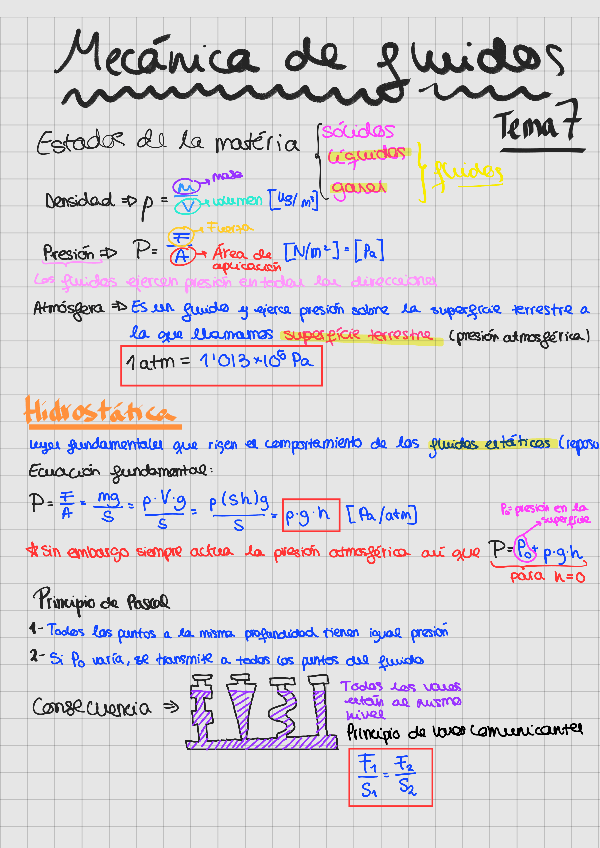 Mecánica de fluidos
Tema 7
Estados de la matéria { sólidos
líquidos
gases } fluidos
Densidad ⇒ ρ = m/V → masa → volumen [Kg/m³]
Presión ⇒ P = F/A Fuerza → Área de aplicación [N/m²] = [Pa]
Los fluidos ejercen presión en todas las direcciones
Atmósfera ⇒ Es un fluido y ejerce presión sobre la superficie terrestre a
la que llamamos superficie terrestre (presión atmosférica)
1 atm = 1'013 × 10⁵ Pa
Hidrostática
leyes fundamentales que rigen el comportamiento de los fluidos estáticos (reposo
Ecuación fundamental:
P = F/A = mg/S = ρ·V·g/S = ρ(Sh)g/S = ρ·g·h [Pa/atm]
P₀ = presión en la
superficie
*Sin embargo siempre actua la presión atmosférica así que P = P₀ + ρ·g·h
para h=0
Principio de Pascal
1- Todos los puntos a la misma profundidad tienen igual presión
2- Si P₀ varía, se transmite a todos los puntos del fluido
Consecuencia ⇒
Todos los vasos
están al mismo
nivel
Principio de vasos comunicantes
F₁/S₁ = F₂/S₂